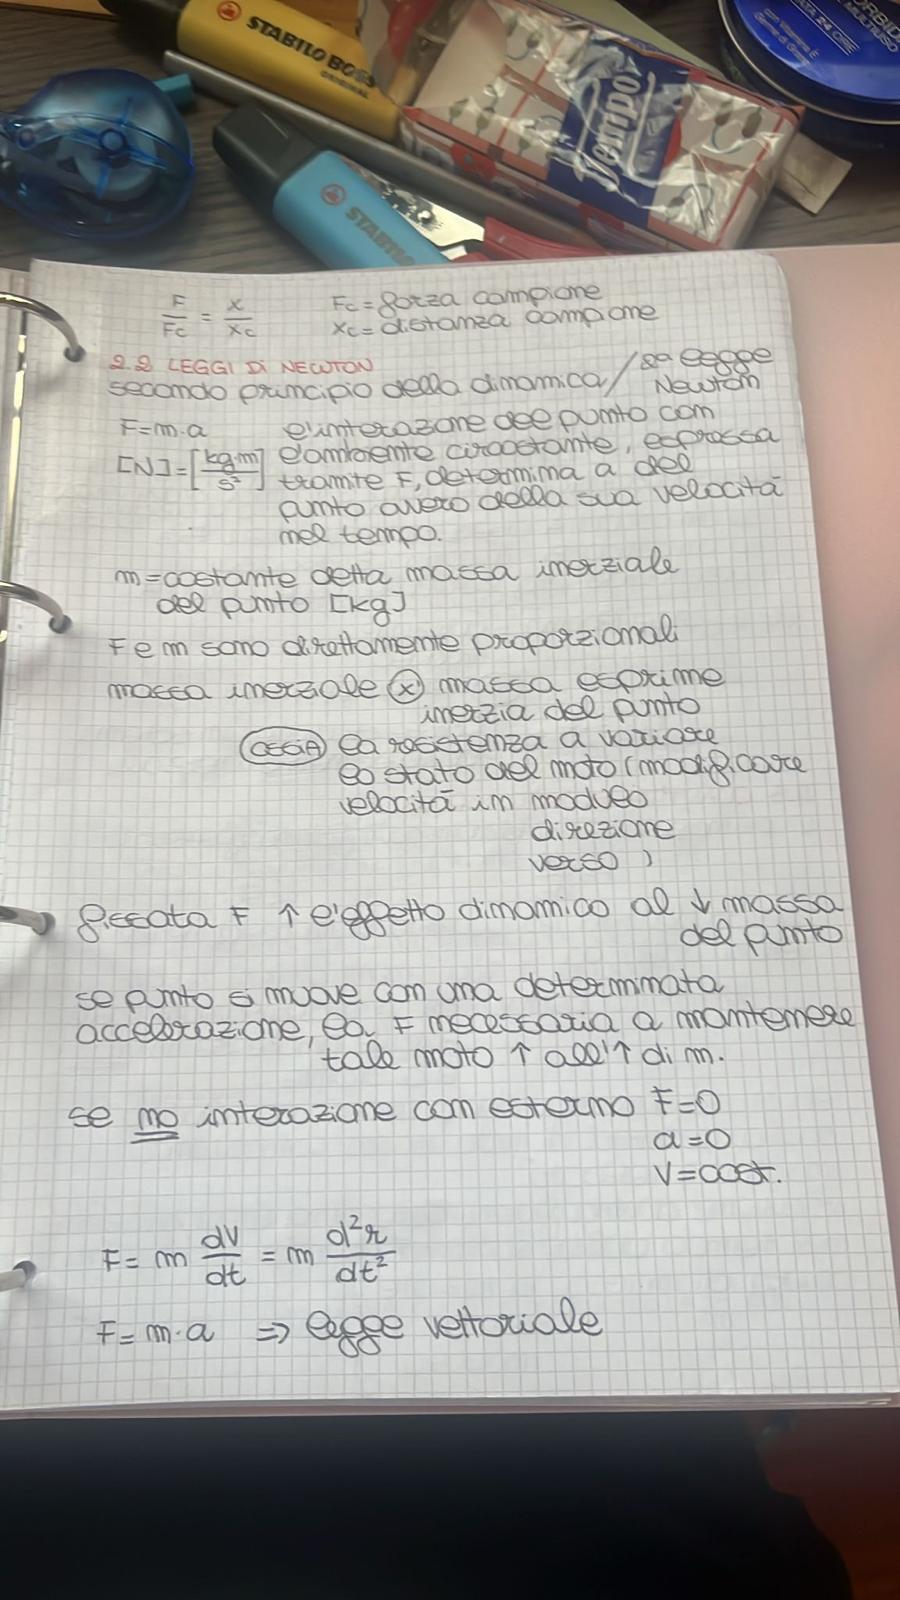 STABILO BOSS
ORIGINAL
STABILO
Tempo
24 ORE
F/Fc = x/xc Fc = forza campione
xc = distanza campione
2.2 LEGGI DI NEWTON
secondo principio della dinamica / 2ª legge Newton
F = m · a l'interazione del punto con
[N] = [kg·m/s²] l'ambiente circostante, espressa
tramite F, determina a del
punto ovvero della sua velocità
nel tempo.
m = costante detta massa inerziale
del punto [kg]
F e m sono direttamente proporzionali
massa inerziale (x) massa esprime
inerzia del punto
OSSIA la resistenza a variare
lo stato del moto (modificare
velocità in modulo
direzione
verso )
fissata F ↑ l'effetto dinamico al ↓ massa
del punto
se punto si muove con una determinata
accelerazione, la F necessaria a mantenere
tale moto ↑ all'↑ di m.
se no interazione con esterno F=0
a=0
v=cost.
F = m dv/dt = m d²r/dt²
F = m·a => legge vettoriale